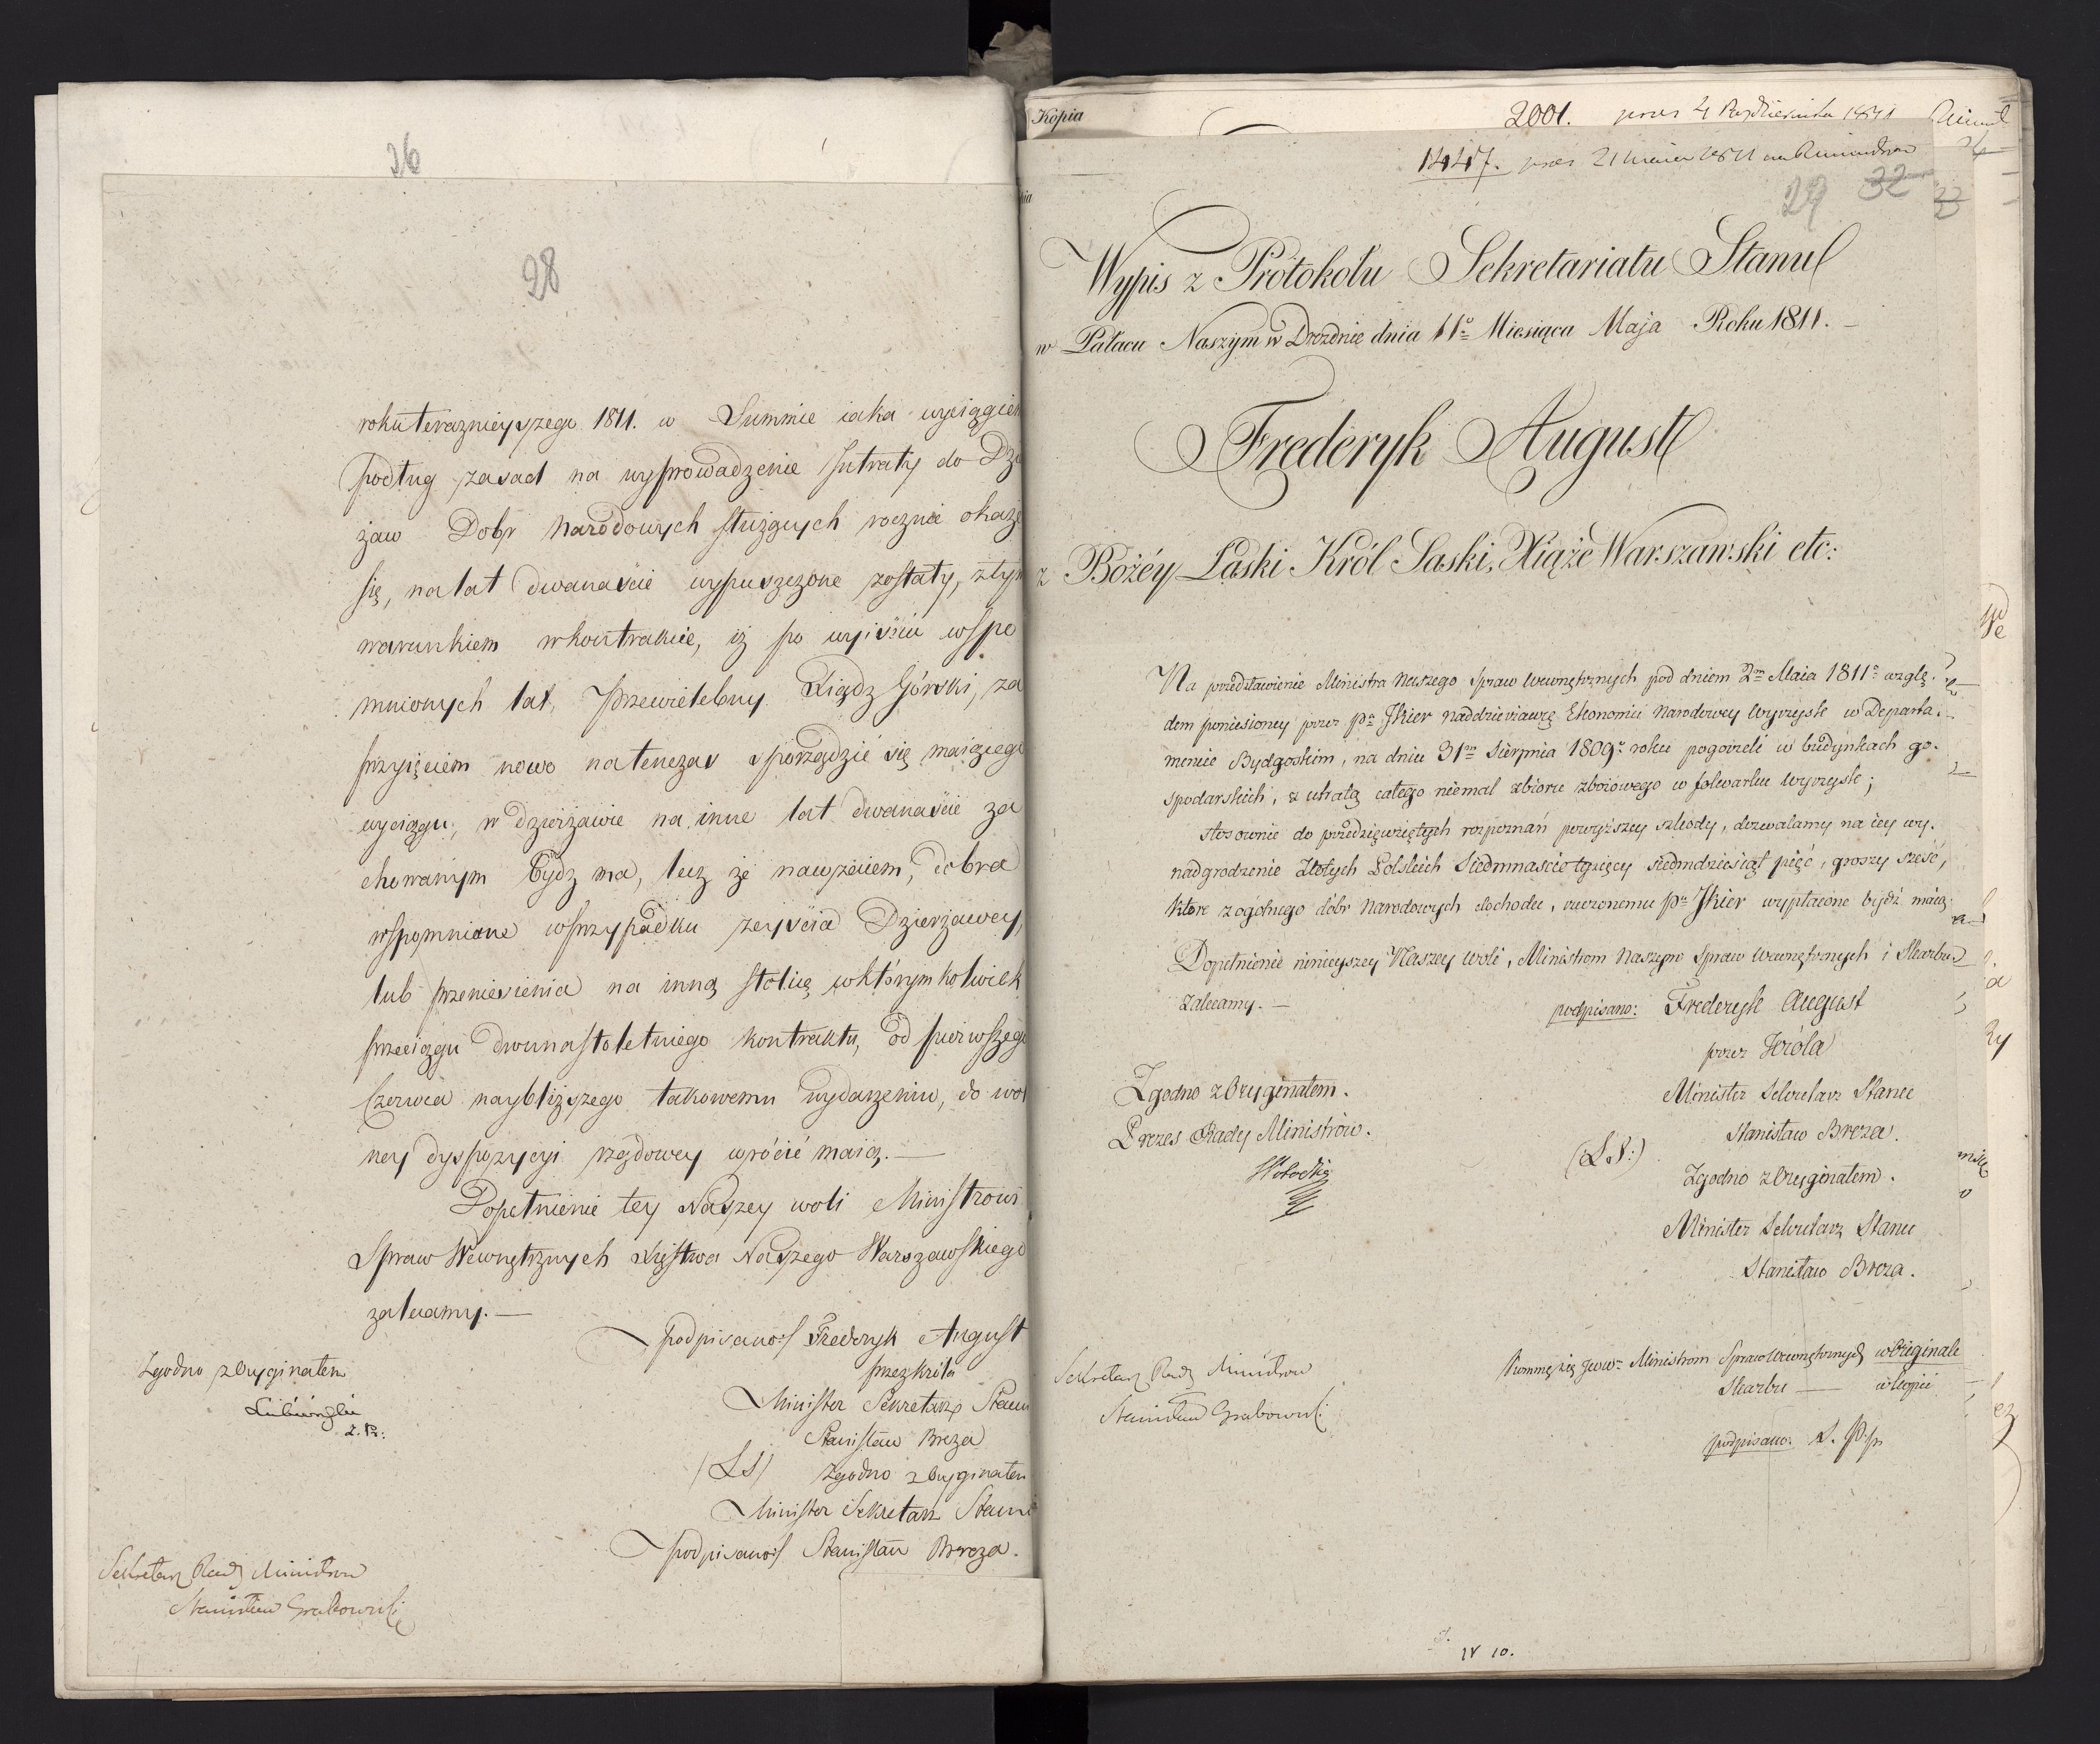 26
28
roku teraznieyszego 1811. w Summie iaka wyciągiem
podług zasad na wyprowadzenie Intraty do Dzie
żaw Dobr Narodowych służących rocznie okaże
się, na lat dwanaście wypuszczone zostały, z tym
warunkiem w kontrakcie, iż po wyiściu wspo
mnionych lat, Przewielebny Xiądz Górski, za
przyięciem nowo natenczas sporządzić się maiącego
wyciągu, w dzierżawie na inne lat dwanaście za
chowanym bydz ma, lecz że nawzaiem, dobra
wspomnione w przypadku zeyścia Dzierżawcy,
lub przeniesienia na inną stolicę w którym kolwiek
przeciągu dwunastoletniego kontraktu, od pierwszego
Czerwca naybliższego takowemu wydarzeniu, do wol
ney dyspozycyi rządowey wrócić maią. —
Dopełnienie tey Naszey woli Ministrowi
Spraw Wewnętrznych Xięstwa Naszego Warszawskiego
zalecamy. —
podpisano:/ Frederyk August
przez króla
Minister Sekretarz Stanu
Stanisław Breza
/LS/ Zgodno z Oryginałem
Minister Sekretarz Stanu
podpisano:/ Stanisław Breza.
Zgodno z Oryginałem
Łubieński
Sekretarz Rady Ministrow
Stanisław Grabowski
Kopia
2001. przez 4 Października 1811
1447. przez 21 1811
29 32
33
Wypis z Protokołu Sekretariatu Stanu
w Pałacu Naszym w Dreźnie dnia 11o Miesiąca Maja Roku 1811. —
Frederyk August
z Bożéy Łaski Król Saski, Xiąże Warszawski etc:
Na przedstawienie Ministra Naszego Spraw Wewnętrznych pod dniem 2m Maia 1811o wzglę-
dem poniesioney przez Pa Jkier Naddzierżawcę Ekonomii Narodowey Wyrzysk w Departa-
mencie Bydgoskim, na dniu 31m Sierpnia 1809o roku pogorzeli w budynkach go-
spodarskich, z utratą całego niemal zbioru zbożowego w folwarku Wyrzysk;
stosownie do przedzięwziętych rozpoznań powyższey szkody, dozwalamy na iey wy-
nadgrodzenie Złotych Polskich Siedmnaście tysięcy siedmdziesiąt pięć, groszy sześć,
które z ogólnego dóbr Narodowych dochodu, rzeczonemu Pu Jkier wypłacone bydź maią.
Dopełnienie ninieyszey Naszey woli, Ministrom Naszym Spraw Wewnętrznych i Skarbu
zalecamy. —
podpisano: Frederyk August
przez Króla
Minister Sekretarz Stanu
Stanisław Breza.
(L.S:)
Zgodno z Oryginałem.
Minister Sekretarz Stanu
Stanisław Breza.
Zgodno z Oryginałem.
Prezes Rady Ministrów.
Sekretarz Rady Ministrow
Stanisław Grabowski
Ministrom Spraw Wewnętrznych w Originale
Skarbu — w kopii
podpisano:
10.